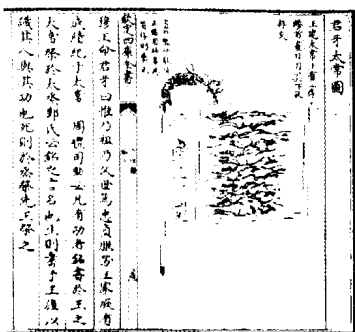 君牙太常圖
王建太常十有二斿
縿首畫日月其下
欽定四庫全書
穆王命君牙曰惟乃祖乃父世篤忠貞服勞王家厥有
成績紀于太常 周禮司勳云凡有功者銘書於王之
大常祭於大烝鄭氏云銘之言名也生則書于王旌以
識其人與其功也死則於烝祭先王祭之